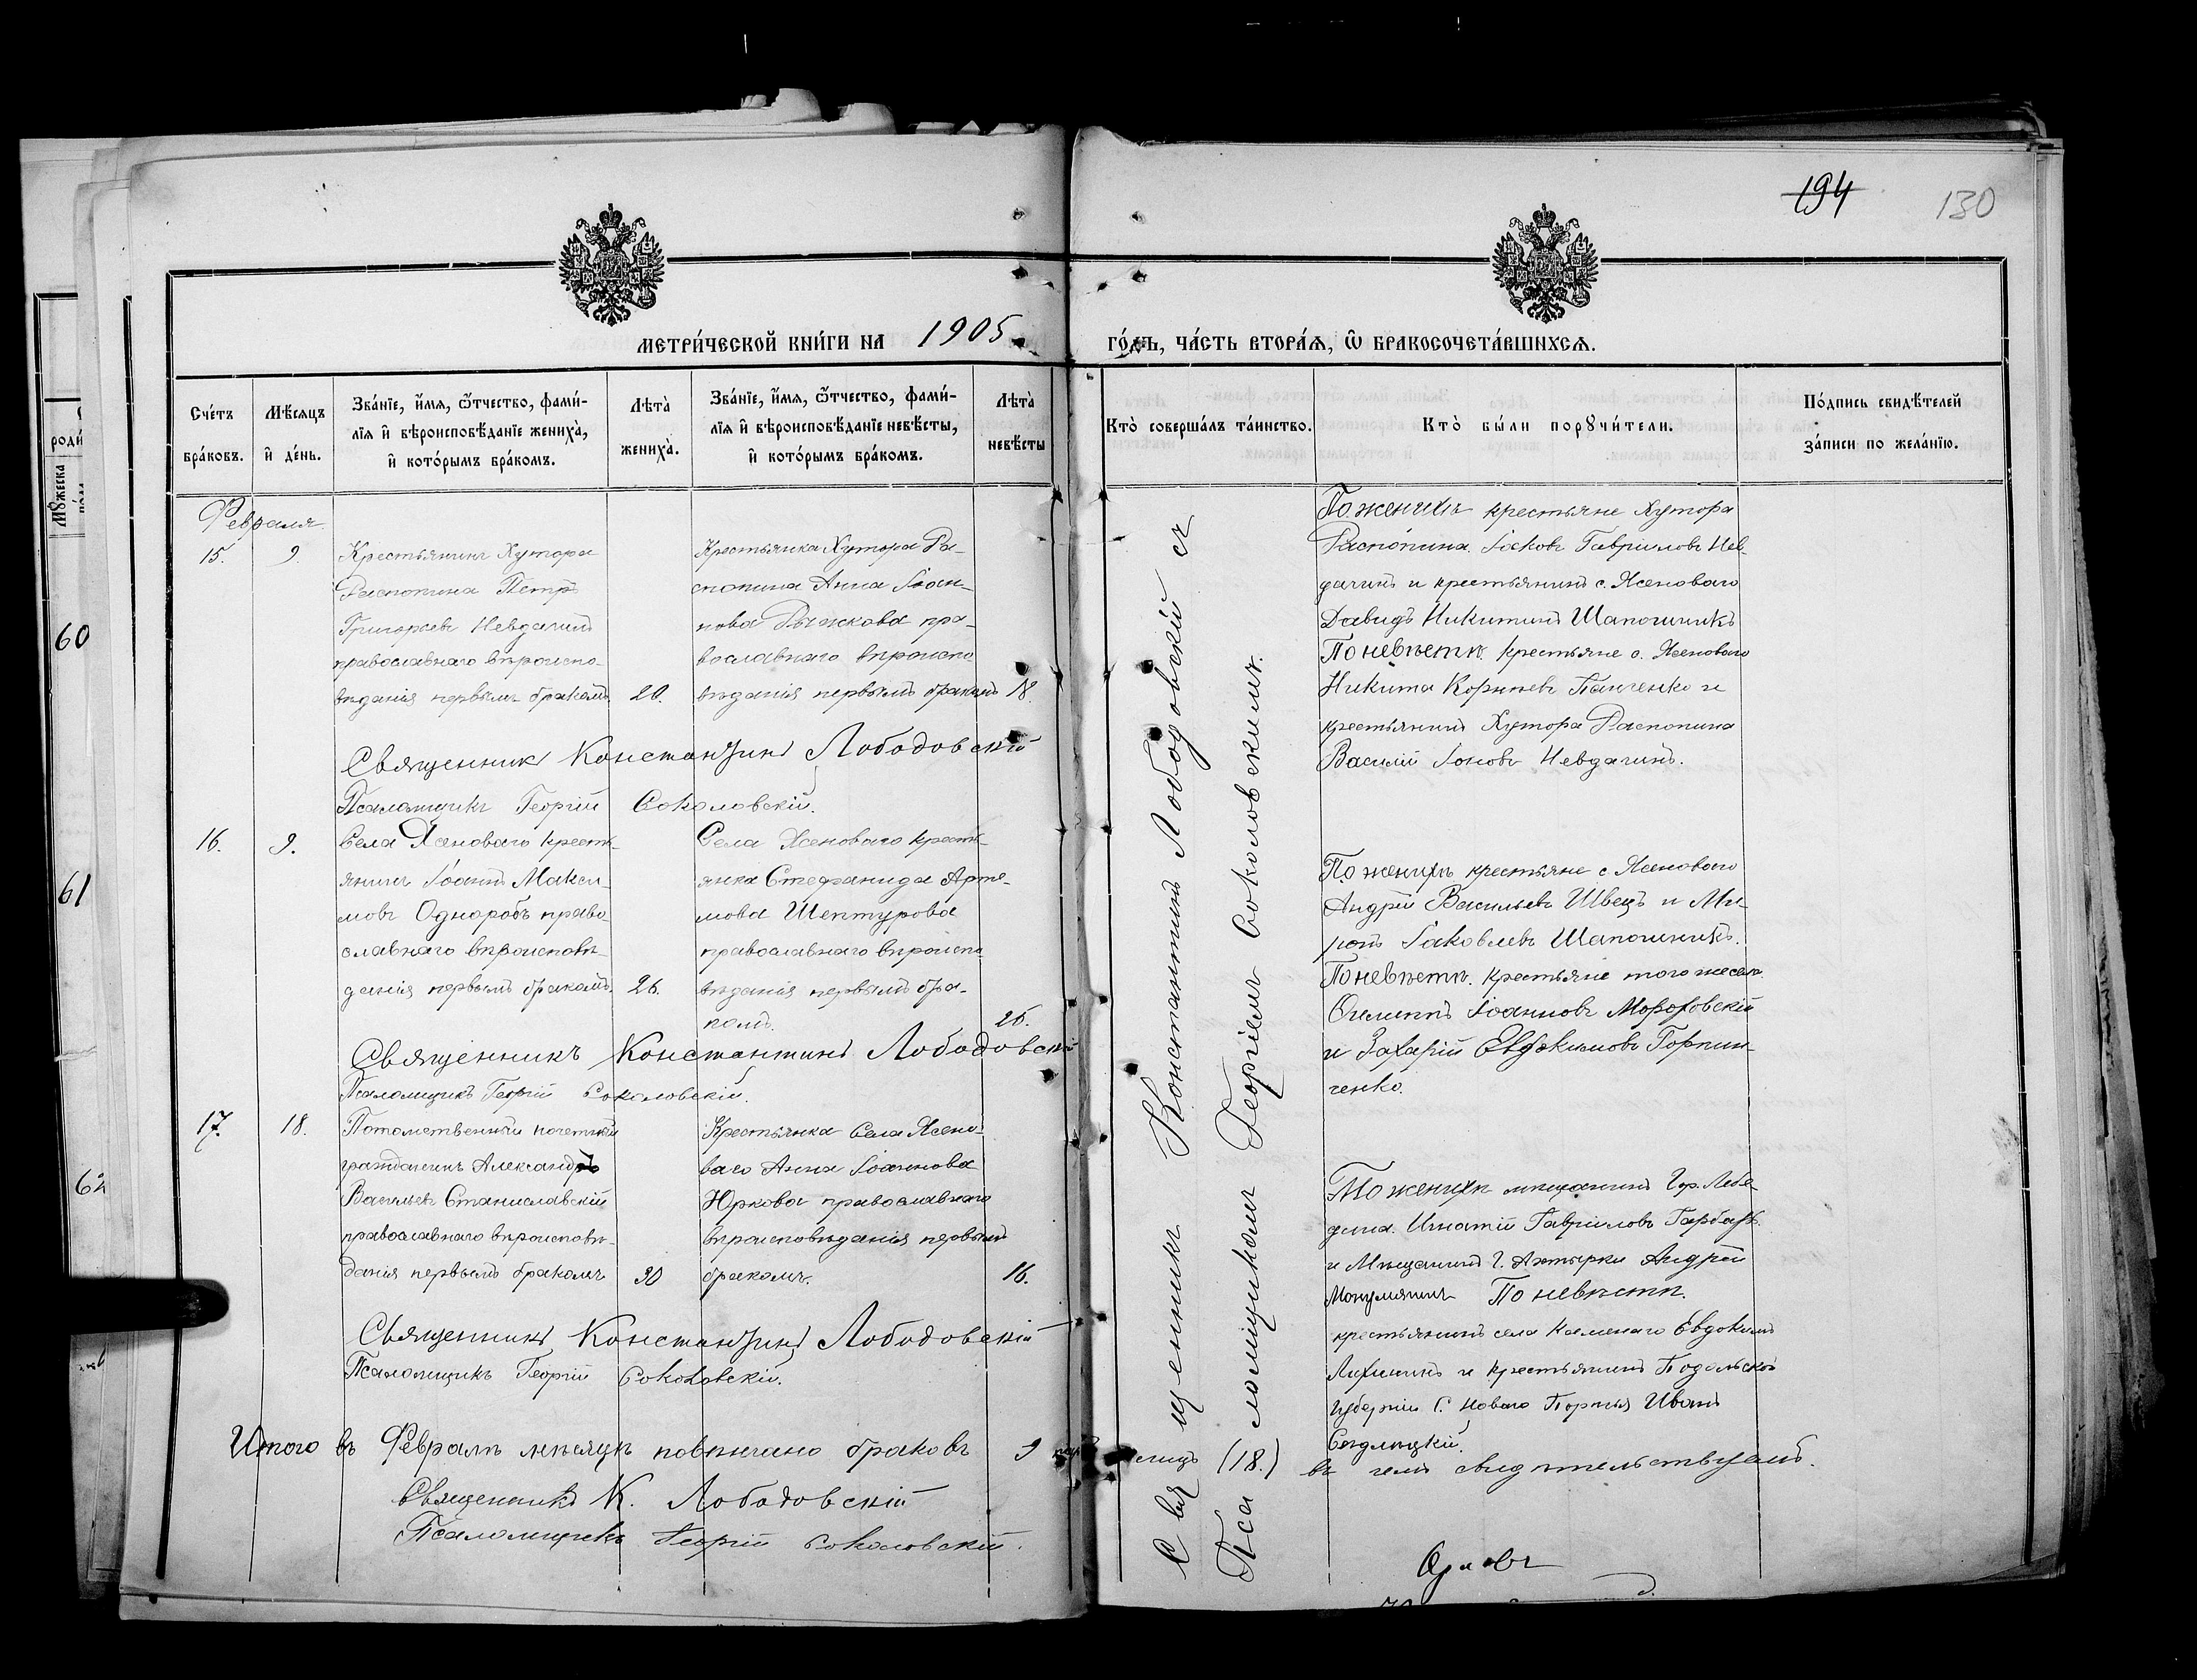 194
130
МЕТРИ́ЧЕСКОЙ КНИ́ГИ НА 1905
ГО́ДЪ, ЧА́СТЬ ВТОРА́Ѧ, Ѽ БРАКОСОЧЕТА́ВШИХСѦ.
Сче́тъ
бра́ковъ.
Мѣ́сяцъ
и҆ де́нь.
Зва́нїе, и҆́мѧ, ѻ҆́тчество, фами́-
лїѧ и҆ вѣроисповѣ́данїе жениха̀,
и҆ кото́рымъ бра́комъ.
Лѣта̀
жениха̀.
Зва́нїе, и҆́мѧ, ѻ҆́тчество, фами́-
лїѧ и҆ вѣроисповѣ́данїе невѣ́сты,
и҆ кото́рымъ бра́комъ.
Лѣта̀
невѣ́сты
Кто̀ соверша́лъ та́инство.
Кто̀ бы́ли порꙋчи́тели.
По́дпись свидѣ́телей
за́писи по жела́нїю.
Февраля
15.
9.
Крестьянинъ Хутора
Распопина Петръ
Григорьевъ Невдачинъ
православнаго вѣроиспо-
вѣданія первымъ бракомъ
20.
Крестьянка Хутора Ра-
спопина Анна Іоан-
нова Рыжкова пра-
вославнаго вѣроиспо
вѣданія первымъ бракомъ
18.
По женихѣ крестьяне Хутора
Распопина Іаковъ Гавріиловъ Нев-
дачинъ и крестьянинъ с. Ясеноваго
Давидъ Никитинъ Шапошникъ
По невѣстѣ. крестьяне с. Ясеноваго
Никита Корнѣевъ Панченко и
крестьянинъ Хутора Распопина
Василій Іоновъ Невдачинъ.
Священникъ Константинъ Лободовскій
Псаломщикъ Георгій Соколовскій.
16.
9.
Села Ясеноваго кресть-
янинъ Іоаннъ Макси-
мовъ Одноробъ право-
славнаго вѣроисповѣ-
данія первымъ бракомъ.
26.
Села Ясеноваго кресть-
янка Стефанида Арте-
мова Шептурова
православнаго вѣроиспо
вѣданія первымъ бра-
комъ.
26.
По женихѣ крестьяне с Ясеноваго
Андрій Васильевъ Швецъ и Ми-
ронъ Іаковлевъ Шапошникъ.
По невѣстѣ. крестьяне того же села
Филиппъ Іоанновъ Мороховскій
и Захарій Евдокимовъ Горпин-
ченко.
Священникъ Константинъ Лободовскій
Псаломщикъ Георгій Соколовскій.
17.
18.
Потомственный почетный
гражданинъ Александръ
Васильевъ Станиславскій
православнаго вѣроисповѣ-
данія первымъ бракомъ
30
Крестьянка Села Ясено-
ваго Анна Іоаннова
Юркова православнаго
вѣроисповѣданія первымъ
бракомъ.
16.
По женихѣ мѣщанинъ Гор. Лебе-
дина. Игнатій Гавріиловъ Гарбарь.
и Мѣщанинъ Г. Ахтырки Андрій
По невѣстѣ.
крестьянинъ села Каменаго Евдокимъ
и крестьянинъ Подольской
губерніи С. Новаго Порѣчья Иванъ
Сѣдлецкій.
Священникъ Константинъ Лободовскій
Псаломщикъ Георгій Соколовскій.
Священникъ Константинъ Лободовскій съ
Псаломщикомъ Георгіемъ Соколовскимъ.
Итого въ Февралѣ мѣсяцѣ повѣнчано браковъ 9 лицъ (18.) въ чемъ свидѣтельствуемъ.
Священникъ К. Лободовскій
Псаломщикъ Георгій Соколовскій.
60
61
62